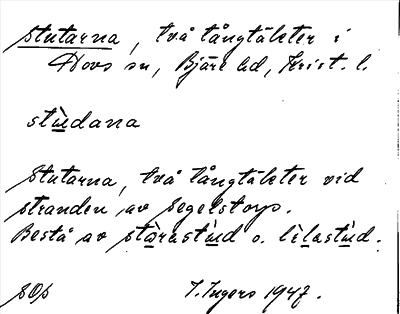 stutarna, två tångtäkter i
Hovs sn, Bjäre hd, Krist. l.
stùdana
Stutarna, två tångtäkter vid
stranden av Segelstorp.
Bestå av stårastùd o. lìlastùd.
I. Ingers 1947.